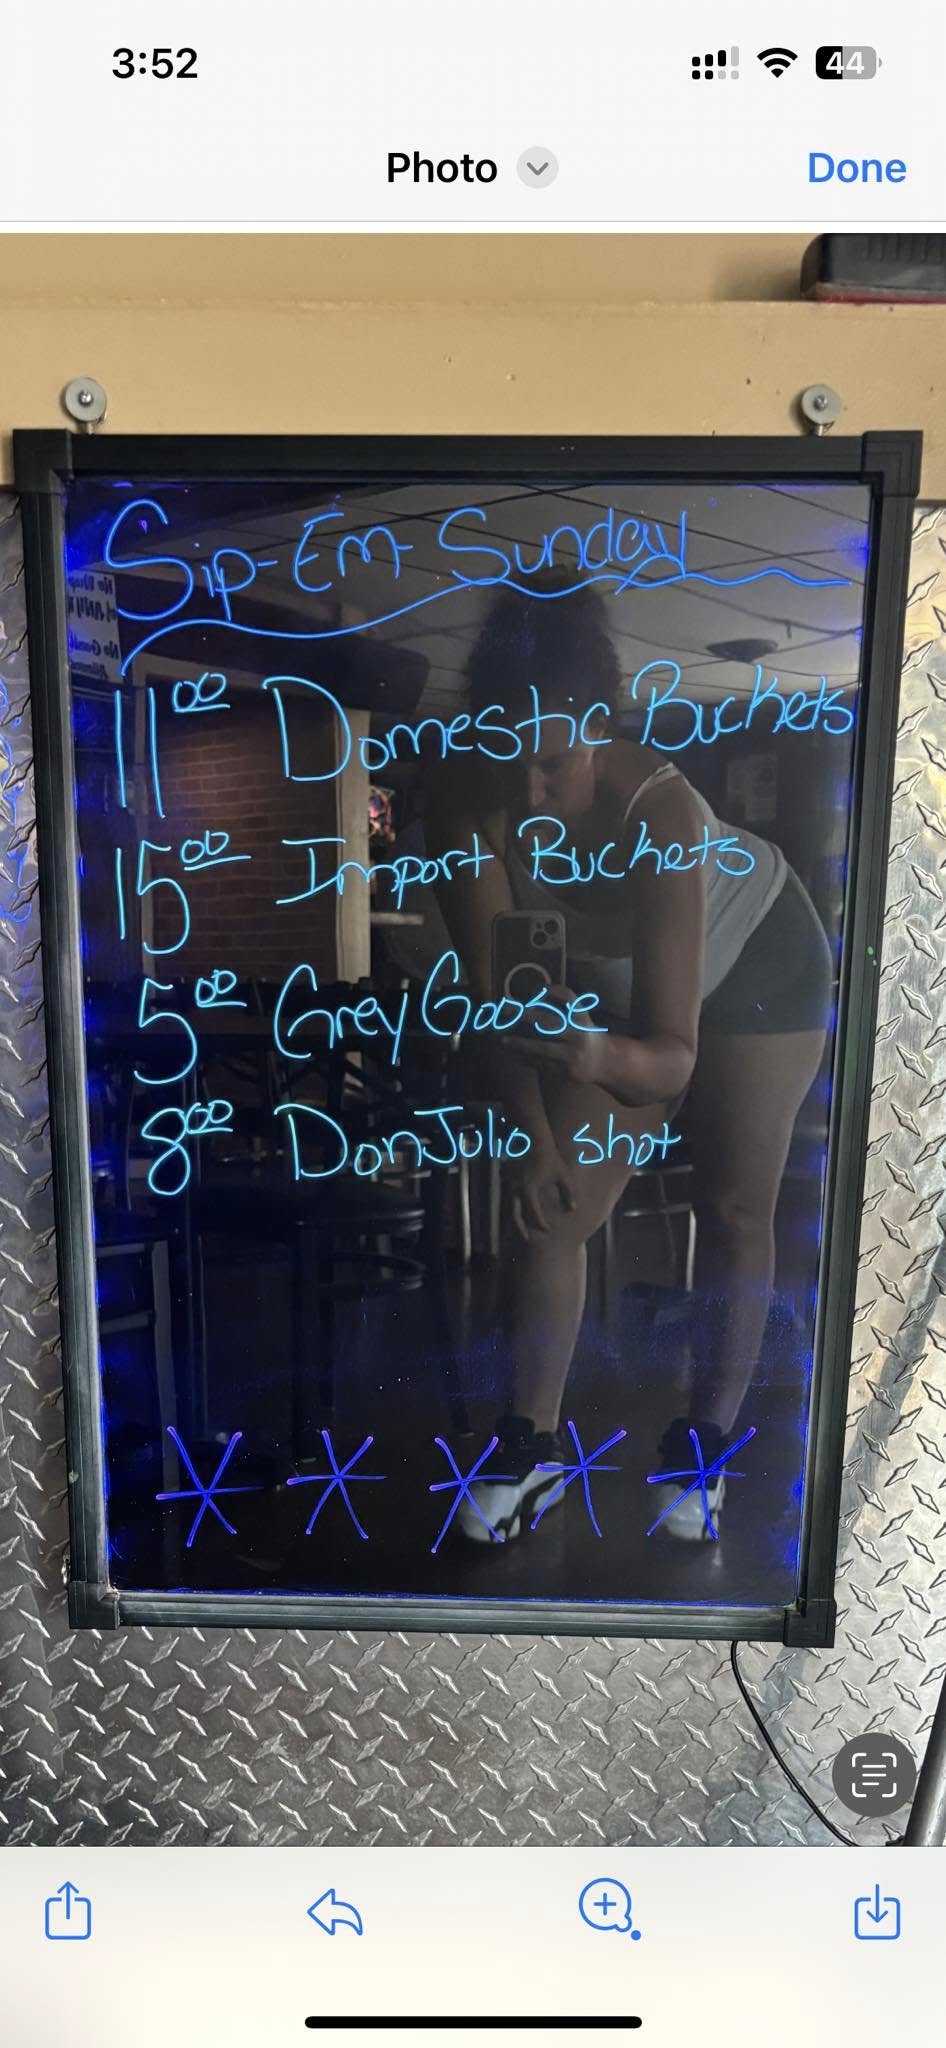 3:52
44
Photo
Done
Sip-Em-Sunday
11⁰⁰ Domestic Buckets
15⁰⁰ Import Buckets
5⁰⁰ Grey Goose
8⁰⁰ Don Julio shot